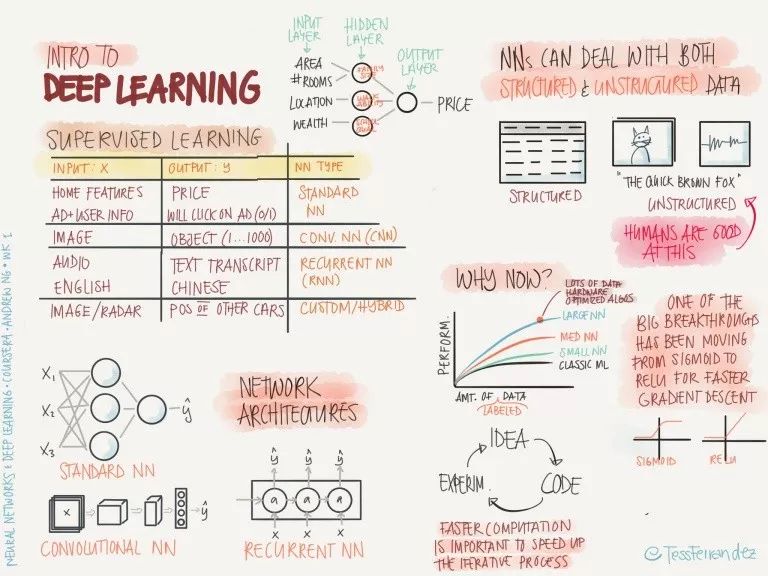 INTRO TO
DEEP LEARNING
INPUT LAYER
HIDDEN LAYER
OUTPUT LAYER
AREA
#ROOMS
LOCATION
WEALTH
FAMILY SIZE
PRICE
SUPERVISED LEARNING
INPUT: X OUTPUT: y NN TYPE
HOME FEATURES PRICE STANDARD
AD+USER INFO WILL CLICK ON AD (0/1) NN
IMAGE OBJECT (1...1000) CONV. NN (CNN)
AUDIO TEXT TRANSCRIPT RECURRENT NN
ENGLISH CHINESE (RNN)
IMAGE/RADAR POS OF OTHER CARS CUSTOM/HYBRID
NNs CAN DEAL WITH BOTH
STRUCTURED & UNSTRUCTURED DATA
STRUCTURED
"THE QUICK BROWN FOX"
UNSTRUCTURED
HUMANS ARE GOOD
AT THIS
WHY NOW?
LOTS OF DATA
HARDWARE
OPTIMIZED ALGOS
LARGE NN
MED NN
SMALL NN
CLASSIC ML
PERFORM.
AMT. OF DATA
LABELED
ONE OF THE
BIG BREAKTHROUGHS
HAS BEEN MOVING
FROM SIGMOID TO
RELU FOR FASTER
GRADIENT DESCENT
SIGMOID RELU
X₁
X₂
X₃
ŷ
STANDARD NN
X
ŷ
CONVOLUTIONAL NN
NETWORK
ARCHITECTURES
ŷ ŷ ŷ
a a a
X X X
RECURRENT NN
IDEA
CODE
EXPERIM.
FASTER COMPUTATION
IS IMPORTANT TO SPEED UP
THE ITERATIVE PROCESS
NEURAL NETWORKS & DEEP LEARNING • COURSERA • ANDREW NG • WK 1
@TessFerrandez